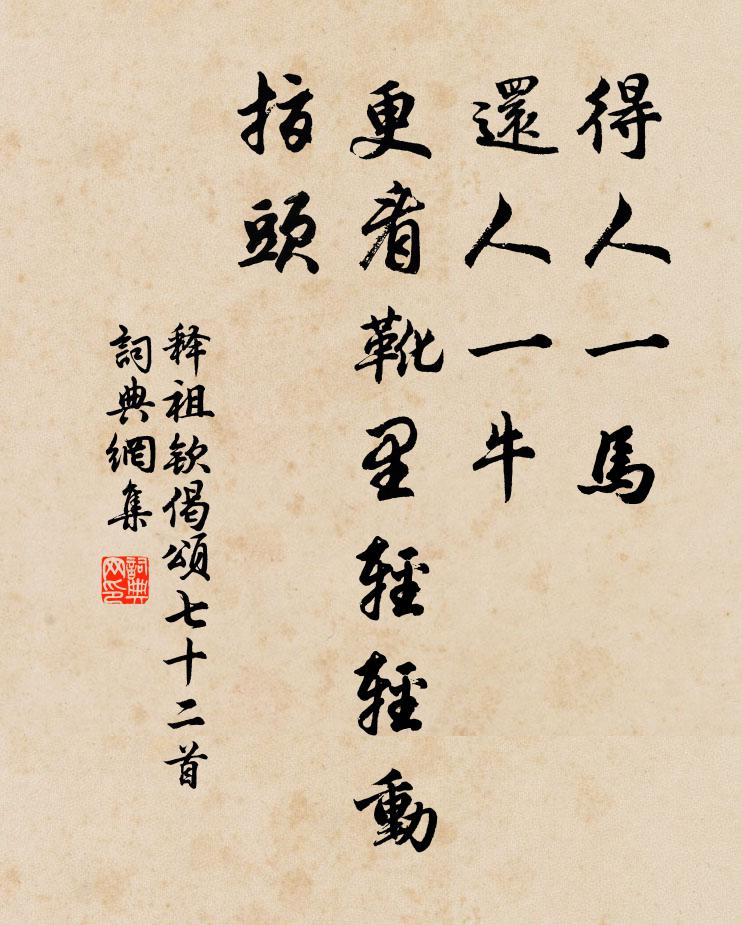 得人一馬
還人一牛
更看靴里輕輕動
指頭
释祖欽偈頌七十二首
詞典網集
詞典网印